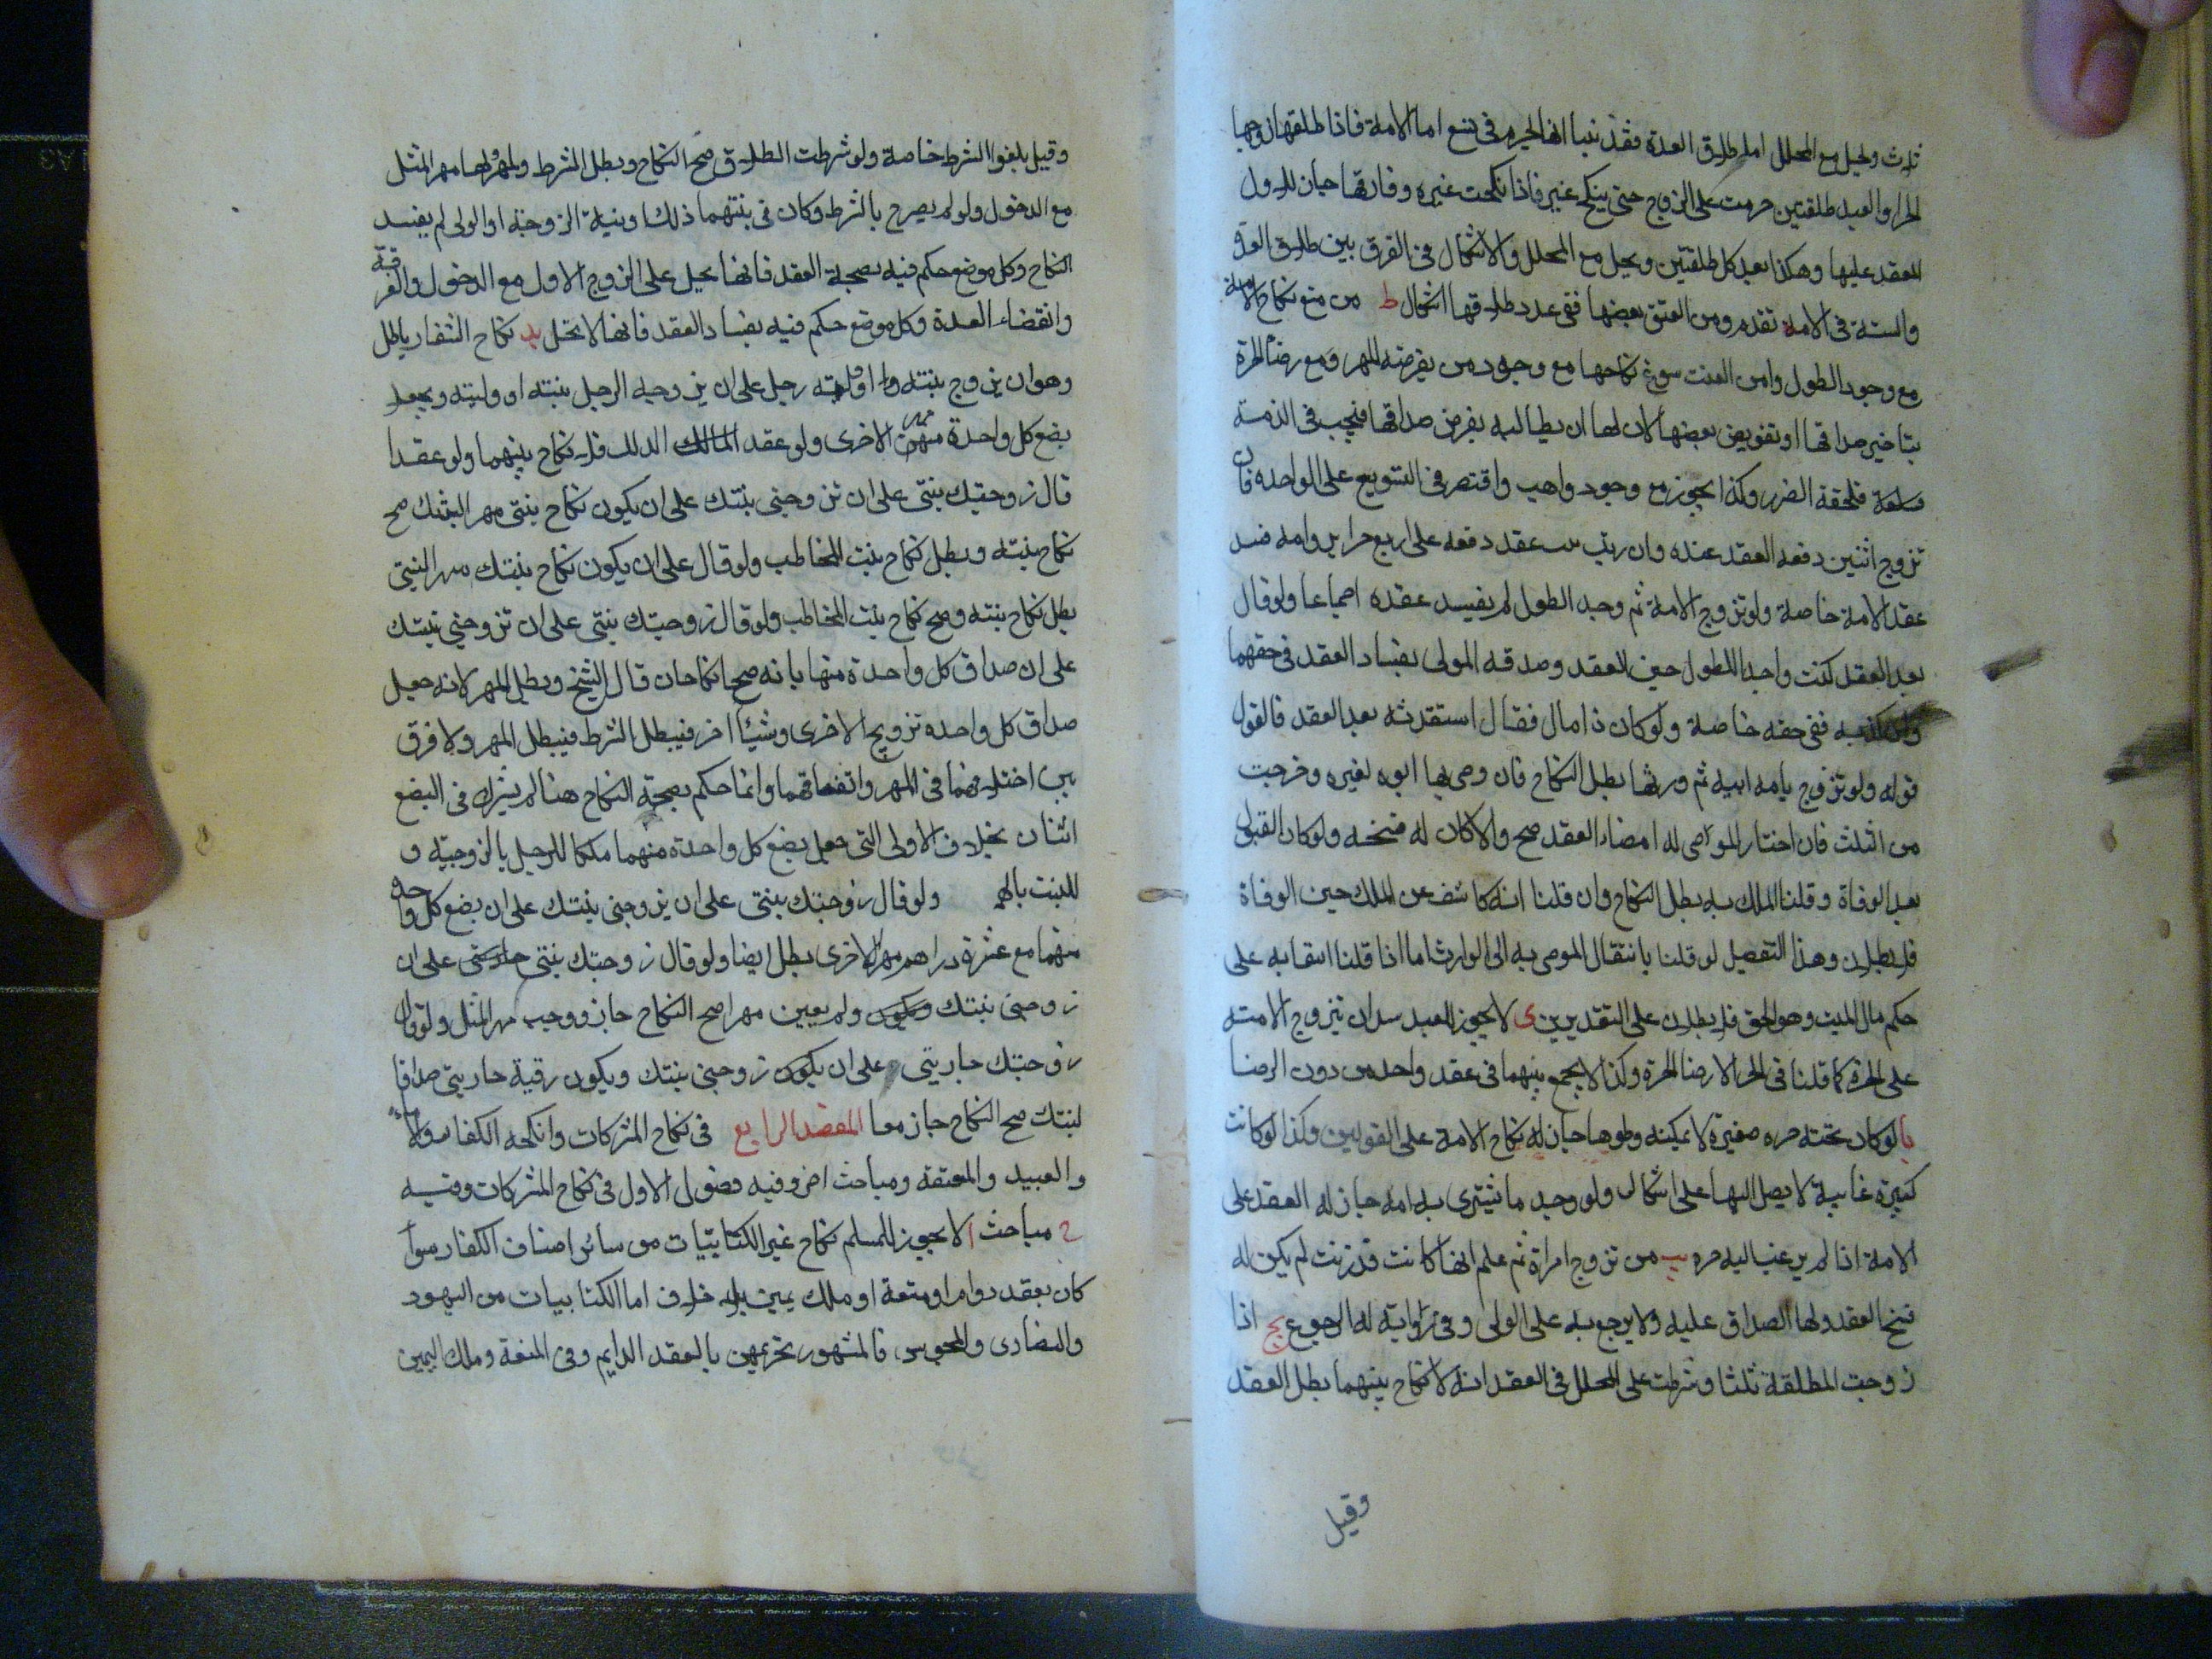 ثلث ويحل مع المحلل اما طلاق العدة فقد بينا انها تحرم في تسع اما الامة فاذا طلقها زوجها
الحر او العبد طلقتين حرمت على الزوج حتى ينكح غيره فاذا نكحت غيره وفارقها جاز للاول
العقد عليها وهكذا بعد كل طلقتين ويحل مع المحلل والاشكال في الفرق بين طلاق العدة
والسنة في الامة تقدم ومن العتق بعضها ففي عدد طلاقها اشكال ط من منع نكاح الامة
مع وجود الطول وامن العنت سوغ نكاحها مع وجود من يقرضه المهر ومع رضا الحرة
بتاخير صداقها او تفويض بعضها لان لها ان يطالبه بفرض صداقها فيجب في الذمة
فلحقه الضرر وكذا يجوز مع وجود واهب واقتصر في التسويغ على الواحده فان
تزوج اثنين دفعه العقد عنده وان رتب عقد دفعه على اربع حراير وامه فسد
عقد الامة خاصة ولو تزوج الامة ثم وجد الطول لم يفسد عقده اجماعا ولو قال
بعد العقد كنت واجدا للطول حين العقد وصدقه المولى بفساد العقد في حقهما
وان كذبه ففي حقه خاصة ولو كان ذا مال فقال استفدته بعد العقد فالقول
قوله ولو تزوج بامه ابيه ثم ورثها بطل النكاح فان وصى بها ابوه لغيره وخرجت
من الثلث فان اختار الموصى له امضاء العقد صح والا كان له فسخه ولو كان القبول
بعد الوفاة وقلنا الملك به بطل النكاح وان قلنا انه كاشف عن الملك حين الوفاة
فلا بطلان وهذا التفصيل لو قلنا بانتقال الموصى به الى الوارث اما اذا قلنا ابقا به على
حكم مال الميت وهو الحق فلا بطلان على التقديرين ى لا يجوز للعبد ان يتزوج الامته
على الحرة كما قلنا في الحر الا رضا الحرة وكذا لا يجمع بينهما في عقد واحد من دون الرضا
يا لو كان تحته حره صغيرة لا يمكنه وطوها جاز له نكاح الامة على القولين وكذا لو كانت
كبيرة غايبة لا يصل اليها على اشكال ولو وجد ما يشترى به امه جاز له العقد على
الامة اذا لم يرغب اليه حره يب من تزوج امراة ثم علم انها كانت قد زنت لم يكن له
فسخ العقد ولها الصداق عليه ولا يرجع به على الولى وفي رواية له الرجوع يج اذا
زوجت المطلقة ثلثا وشرطت على المحلل في العقد انه لا نكاح بينهما بطل العقد
وقيل
وقيل يلغوا الشرط خاصة ولو شرطت الطلاق صح النكاح وبطل الشرط والمهر ولها مهر المثل
مع الدخول ولو لم يصرح بالشرط وكان في نيتهما ذلك او نية الزوجة او الولى لم يفسد
النكاح وكل موضع حكم فيه بصحة العقد فانها تحل على الزوج الاول مع الدخول والفرقة
وانقضاء العدة وكل موضع حكم فيه بفساد العقد فانها لا تحل يد نكاح الشغار باطل
وهو ان يزوج بنته او وليته رجل على ان يزوجه الرجل بنته او وليته ويجعل
بضع كل واحدة منهن مهر الاخرى ولو عقد الذلك فلا نكاح بينهما ولو عقدا
قال زوجتك بنتى على ان تزوجنى بنتك على ان يكون نكاح بنتى مهر البنتك صح
نكاح بنته وبطل نكاح بنت المخاطب ولو قال على ان يكون نكاح بنتك مهر البنتى
بطل نكاح بنته وصح نكاح بنت المخاطب ولو قال زوجتك بنتى على ان تزوجنى بنتك
على ان صداق كل واحدة منها يا نه صح النكاحان قال الشيخ وبطل المهر لانه جعل
صداق كل واحده تزويج الاخرى وشيئا اخر فيبطل الشرط فيبطل المهر ولا فرق
بين اختلافهما في المهر واتفاقهما وانما حكم بصحة النكاح هنا لم يشرك في البضع
اثنان بخلاف الاولى التى جعل بضع كل واحدة منهما ملكا للرجل بالزوجية و
للبنت بالمهر ولو قال زوجتك بنتى على ان يزوجنى بنتك على ان بضع كل واحده
منهما مع عشرة دراهم مهر الاخرى بطل ايضا ولو قال زوجتك بنتى على ان
زوجنى بنتك ولم يعين مهرا صح النكاح جاز ووجب مهر المثل ولو قال
زوجتك جاريتى على ان يكون زوجنى بنتك ويكون رقبة جاريتى صداقا
لبنتك صح النكاح جاز معا المقصد الرابع في نكاح المشركات وانكحه الكفار والاماء
والعبيد والمعتقة ومباحث اخر وفيه فصول الاول في نكاح المشركات وفيه
ح مباحث ا لا يجوز للمسلم نكاح غير الكتابيات من سائر اصناف الكفار سواء
كان بعقد دوام او متعة او ملك يمين بلا خلاف اما الكتابيات من اليهود
والنصارى والمجوس فالمشهور تحريمهن بالعقد الدايم وفي المتعة وملك اليمين